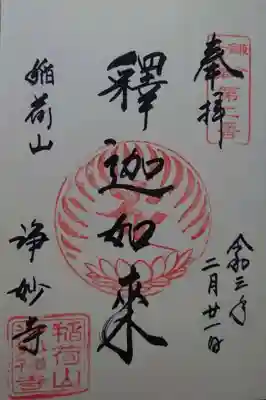 奉拝
令和三年
二月廿一日
釋迦如來
稲荷山
浄妙寺
第二番
稲荷山